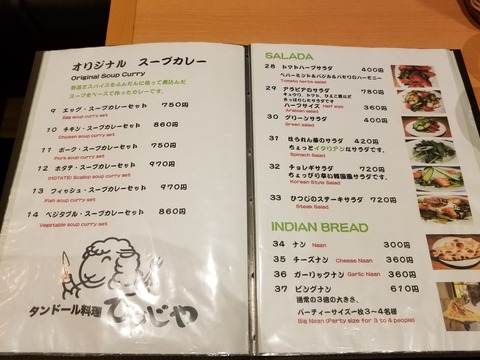 オリジナル スープカレー
Original Soup Curry
野菜とスパイスをふんだんに使って煮込んだ
スープをベースで作ったカレーです。
9 エッグ・スープカレーセット 750円
Egg soup curry set
10 チキン・スープカレーセット 860円
Chicken soup curry set
11 ポーク・スープカレーセット 750円
Pork soup curry set
12 ホタテ・スープカレーセット 970円
(HOTATE) Scallop soup curry set
13 フィッシュ・スープカレーセット 970円
Fish soup curry set
14 ベジタブル・スープカレーセット 860円
Vegetable soup curry set
タンドール料理
ひつじや
SALADA
28 トマトハーブサラダ 400円
ペパーミント&バジル&パセリのハーモニー
Tomato herbs salad
29 アラビアのサラダ 780円
キュウリ、トマト、ひよこ豆など
さっぱりしたサラダです
ハーフサイズ Half size 360円
Arabian salad
30 グリーンサラダ 400円
Green salad
31 ほうれん草のサラダ 420円
ちょっとイタリアンなサラダです。
Spinach Salad
32 チョレギサラダ 720円
ちょっぴり辛い韓国風サラダです
Korean Style Salad
33 ひつじのステーキサラダ 720円
Steak Salad
INDIAN BREAD
34 ナン Naan 300円
35 チーズナン Cheese Naan 360円
36 ガーリックナン Garlic Naan 360円
37 ビッグナン 610円
通常の3倍の大きさ、
パーティーサイズー枚3~4名様
Big Naan (Party size for 3 to 4 people)